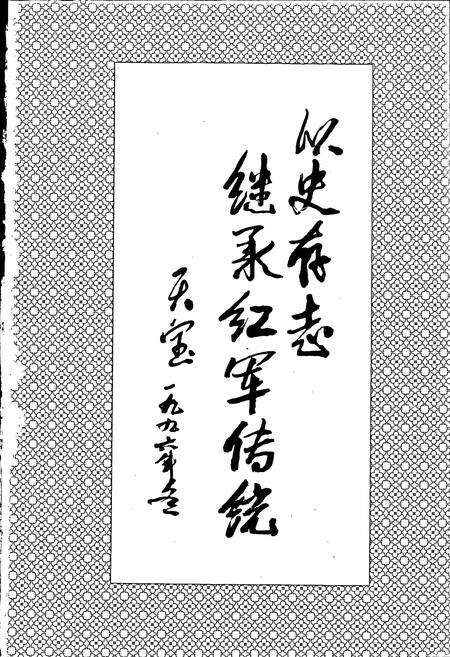 以史存志
继承红军传统
天宝
一九九六年冬